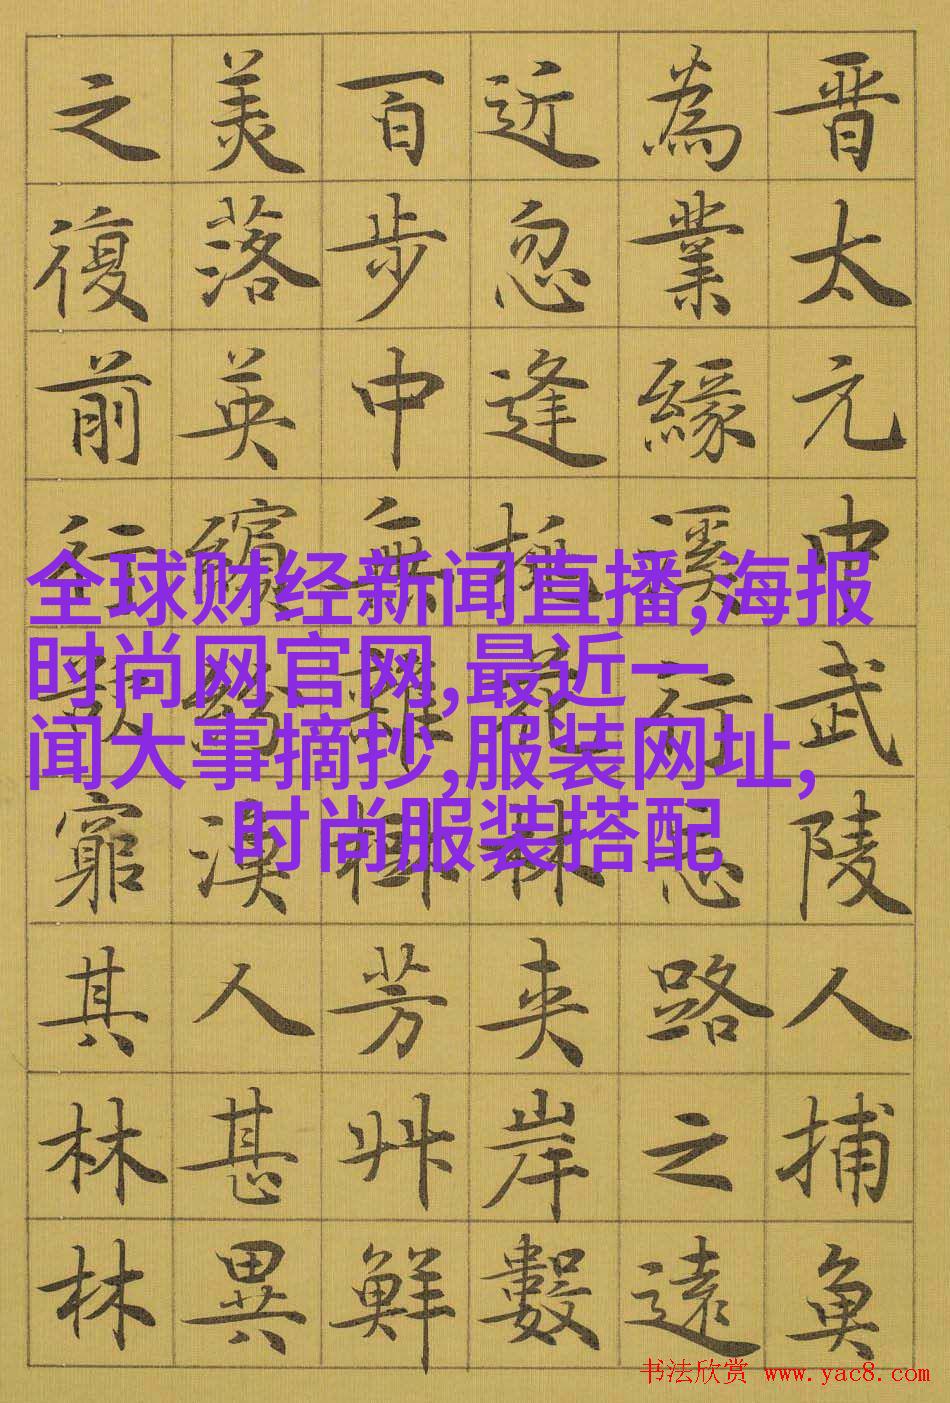 晋太元中武陵人捕魚
為業緣溪行忘路之遠
近忽逢桃花林夾岸數
百步中無雜樹芳艸鮮
美落英繽紛漁人甚異
之復前行欲窮其林林
全球财经新闻直播,海报
时尚网官网,最近一
闻大事摘抄,服装网址,
时尚服装搭配
书法欣赏 www.yac8.com